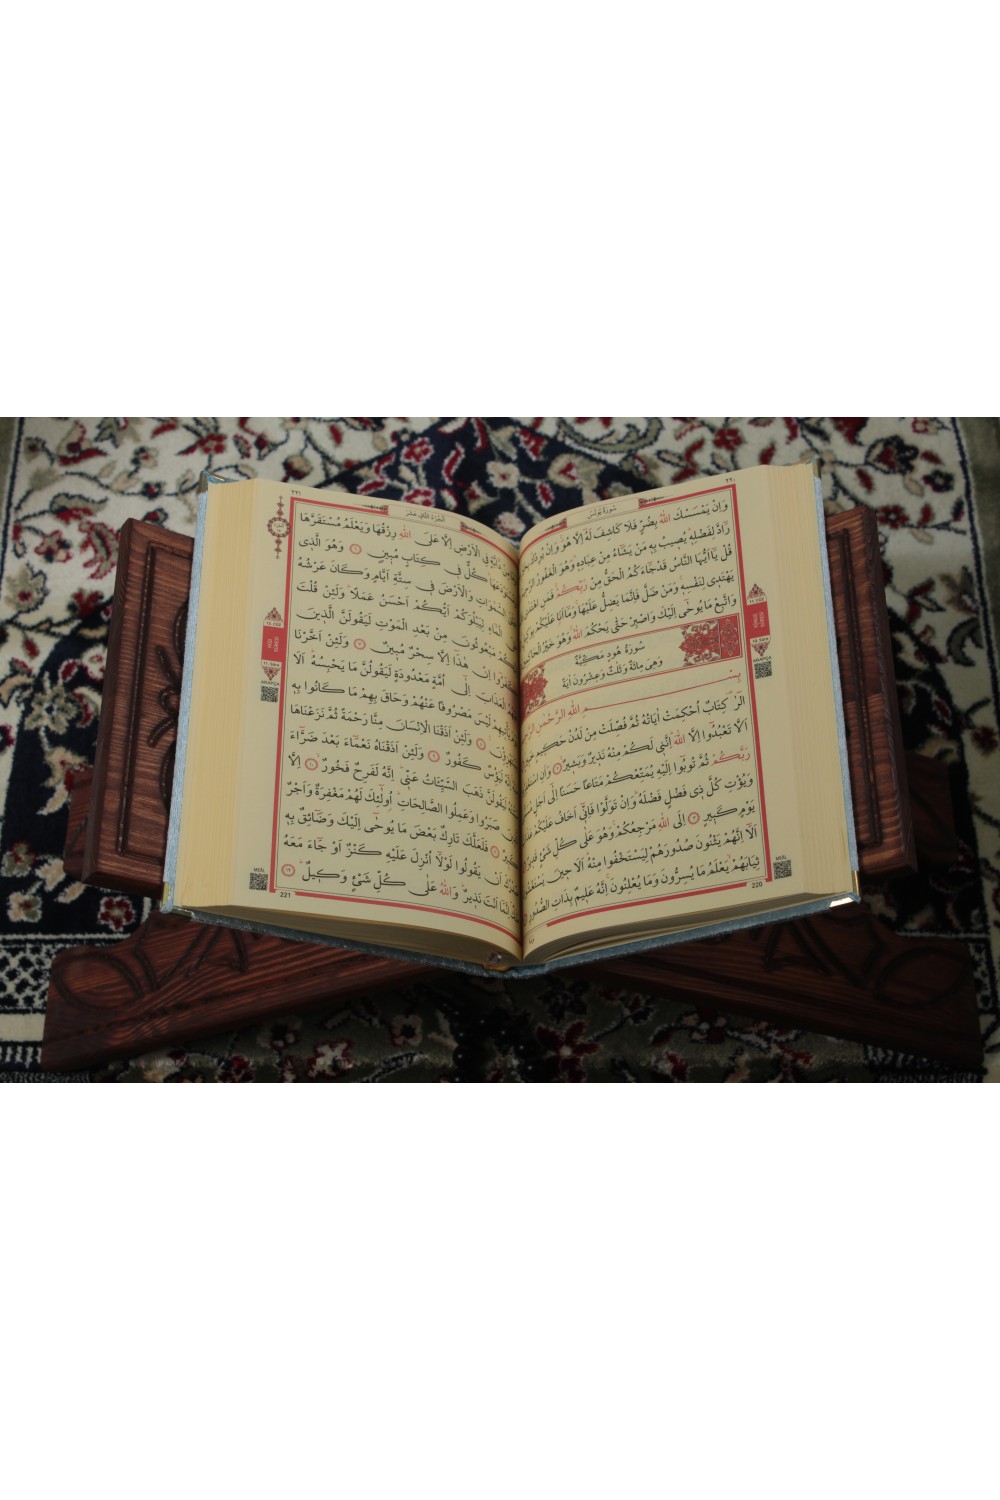 ٢٢٠
سُورَةُ يُونُسَ
وَاِنْ يَمْسَسْكَ اللّٰهُ بِضُرٍّ فَلَا كَاشِفَ لَهُٓ اِلَّا هُوَۚ وَاِنْ يُرِدْكَ
رَٓادَّ لِفَضْلِه۪ۜ يُص۪يبُ بِه۪ مَنْ يَشَٓاءُ مِنْ عِبَادِه۪ۜ وَهُوَ الْغَفُورُ
قُلْ يَٓا اَيُّهَا النَّاسُ قَدْ جَٓاءَكُمُ الْحَقُّ مِنْ رَبِّكُمْۚ فَمَنِ
يَهْتَد۪ي لِنَفْسِه۪ۚ وَمَنْ ضَلَّ فَاِنَّمَا يَضِلُّ عَلَيْهَاۚ وَمَٓا اَنَا۬ عَلَيْكُمْ
وَاتَّبِعْ مَا يُوحٰٓى اِلَيْكَ وَاصْبِرْ حَتّٰى يَحْكُمَ اللّٰهُۚ وَهُوَ خَيْرُ
سُورَةُ هُودٍ مَكِّيَّةٌ
وَهِيَ مِائَةٌ وَثَلٰثٌ وَعِشْرُونَ اٰيَةً
بِسْــــــمِ اللّٰهِ الرَّحْمٰنِ
الٓرٰ۠ كِتَابٌ اُحْكِمَتْ اٰيَاتُهُ ثُمَّ فُصِّلَتْ مِنْ لَدُنْ حَك۪يمٍ
اَلَّا تَعْبُدُٓوا اِلَّا اللّٰهَۜ اِنَّن۪ي لَكُمْ مِنْهُ نَذ۪يرٌ وَبَش۪يرٌۙ ٢ وَاَنِ
رَبَّكُمْ ثُمَّ تُوبُٓوا اِلَيْهِ يُمَتِّعْكُمْ مَتَاعًا حَسَنًا اِلٰٓى اَجَلٍ
وَيُؤْتِ كُلَّ ذ۪ي فَضْلٍ فَضْلَهُۜ وَاِنْ تَوَلَّوْا فَاِنّ۪ٓي اَخَافُ عَلَيْكُمْ
يَوْمٍ كَب۪يرٍ ٣ اِلَى اللّٰهِ مَرْجِعُكُمْۚ وَهُوَ عَلٰى كُلِّ شَيْءٍ
اَلَٓا اِنَّهُمْ يَثْنُونَ صُدُورَهُمْ لِيَسْتَخْفُوا مِنْهُۜ اَلَا ح۪ينَ
ثِيَابَهُمْۙ يَعْلَمُ مَا يُسِرُّونَ وَمَا يُعْلِنُونَۚ اِنَّهُ عَل۪يمٌ بِذَاتِ الصُّدُورِ
220
MEÂL
٢٢١
اَلْجُزْءُ الثَّانِي عَشَرَ
فِي الْاَرْضِ اِلَّا عَلَى اللّٰهِ رِزْقُهَا وَيَعْلَمُ مُسْتَقَرَّهَا
كُلٌّ ف۪ي كِتَابٍ مُب۪ينٍ ٦ وَهُوَ الَّذ۪ي
السَّمٰوَاتِ وَالْاَرْضَ ف۪ي سِتَّةِ اَيَّامٍ وَكَانَ عَرْشُهُ
الْمَٓاءِ لِيَبْلُوَكُمْ اَيُّكُمْ اَحْسَنُ عَمَلًاۜ وَلَئِنْ قُلْتَ
مَبْعُوثُونَ مِنْ بَعْدِ الْمَوْتِ لَيَقُولَنَّ الَّذ۪ينَ
اِنْ هٰذَٓا اِلَّا سِحْرٌ مُب۪ينٌ ٧ وَلَئِنْ اَخَّرْنَا
الْعَذَابَ اِلٰٓى اُمَّةٍ مَعْدُودَةٍ لَيَقُولُنَّ مَا يَحْبِسُهُۜ اَلَا
لَيْسَ مَصْرُوفًا عَنْهُمْ وَحَاقَ بِهِمْ مَا كَانُوا بِه۪
٨ وَلَئِنْ اَذَقْنَا الْاِنْسَانَ مِنَّا رَحْمَةً ثُمَّ نَزَعْنَاهَا
لَيَؤُ۫سٌ كَفُورٌ ٩ وَلَئِنْ اَذَقْنَاهُ نَعْمَٓاءَ بَعْدَ ضَرَّٓاءَ
لَيَقُولَنَّ ذَهَبَ السَّيِّـَٔاتُ عَنّ۪يۜ اِنَّهُ لَفَرِحٌ فَخُورٌۙ ١٠ اِلَّا
صَبَرُوا وَعَمِلُوا الصَّالِحَاتِۜ اُو۬لٰٓئِكَ لَهُمْ مَغْفِرَةٌ وَاَجْرٌ
١١ فَلَعَلَّكَ تَارِكٌ بَعْضَ مَا يُوحٰٓى اِلَيْكَ وَضَٓائِقٌ بِه۪
اَنْ يَقُولُوا لَوْلَٓا اُنْزِلَ عَلَيْهِ كَنْزٌ اَوْ جَٓاءَ مَعَهُ
اِنَّمَٓا اَنْتَ نَذ۪يرٌۜ وَاللّٰهُ عَلٰى كُلِّ شَيْءٍ وَك۪يلٌۜ ١٢
221
MEÂL